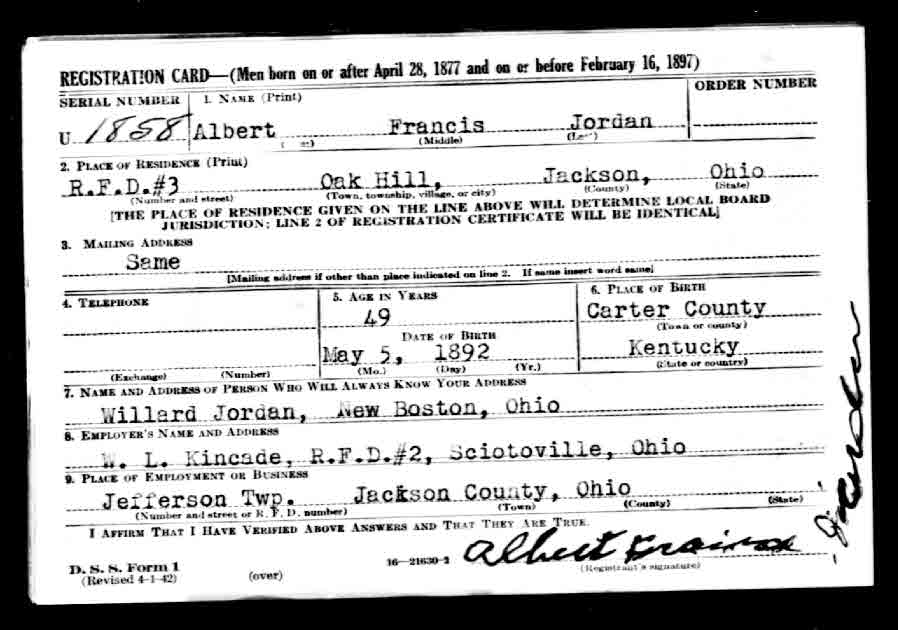 REGISTRATION CARD—(Men born on or after April 28, 1877 and on or before February 16, 1897)
SERIAL NUMBER 1. NAME (Print) ORDER NUMBER
U 1858 Albert Francis Jordan
(Middle)
2. PLACE OF RESIDENCE (Print)
R.F.D.#3 Oak Hill, Jackson, Ohio
(Number and street) (Town, township, village, or city) (County) (State)
[THE PLACE OF RESIDENCE GIVEN ON THE LINE ABOVE WILL DETERMINE LOCAL BOARD
JURISDICTION; LINE 2 OF REGISTRATION CERTIFICATE WILL BE IDENTICAL]
3. MAILING ADDRESS
Same
[Mailing address if other than place indicated on line 2. If same insert word same]
4. TELEPHONE 5. AGE IN YEARS 6. PLACE OF BIRTH
49 Carter County
(Town or county)
DATE OF BIRTH
May 5, 1892 Kentucky
(Exchange) (Number) (Mo.) (Day) (Yr.) (State or country)
7. NAME AND ADDRESS OF PERSON WHO WILL ALWAYS KNOW YOUR ADDRESS
Willard Jordan, New Boston, Ohio
8. EMPLOYER'S NAME AND ADDRESS
W. L. Kincade, R.F.D.#2, Sciotoville, Ohio
9. PLACE OF EMPLOYMENT OR BUSINESS
Jefferson Twp. Jackson County, Ohio
(Number and street or R. F. D. number) (Town) (County) (State)
I AFFIRM THAT I HAVE VERIFIED ABOVE ANSWERS AND THAT THEY ARE TRUE.
D. S. S. Form 1
(Revised 4-1-42) (over) 16—21630-2 Albert
(Registrant's signature)